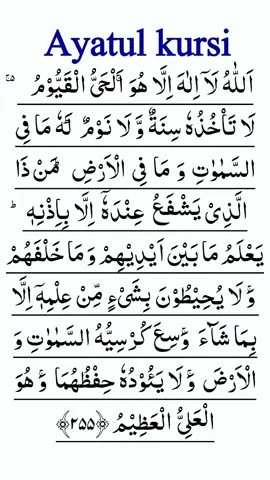 Ayatul kursi
اَللّٰهُ لَاۤ اِلٰهَ اِلَّا هُوَ ۚ اَلْحَیُّ الْقَیُّوْمُ ۚ۬
لَا تَاْخُذُهٗ سِنَةٌ وَّ لَا نَوْمٌ ؕ لَهٗ مَا فِی
السَّمٰوٰتِ وَ مَا فِی الْاَرْضِ ؕ مَنْ ذَا
الَّذِیْ یَشْفَعُ عِنْدَهٗۤ اِلَّا بِاِذْنِهٖ ؕ
یَعْلَمُ مَا بَیْنَ اَیْدِیْهِمْ وَ مَا خَلْفَهُمْ ۚ
وَ لَا یُحِیْطُوْنَ بِشَیْءٍ مِّنْ عِلْمِهٖۤ اِلَّا
بِمَا شَآءَ ۚ وَسِعَ كُرْسِیُّهُ السَّمٰوٰتِ وَ
الْاَرْضَ ۚ وَ لَا یَـُٔوْدُهٗ حِفْظُهُمَا ۚ وَ هُوَ
الْعَلِیُّ الْعَظِیْمُ ﴿۲۵۵﴾